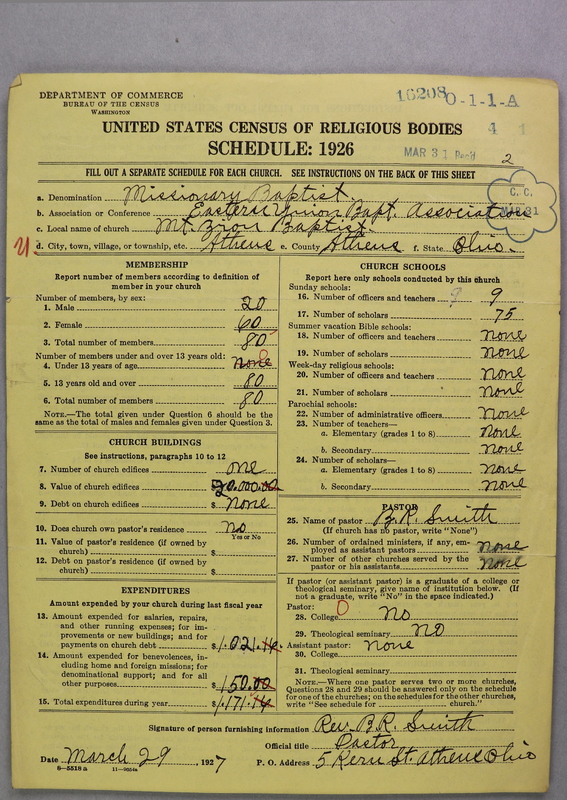 DEPARTMENT OF COMMERCE
BUREAU OF THE CENSUS
WASHINGTON
16208 0-1-1-A
4 1
UNITED STATES CENSUS OF RELIGIOUS BODIES
SCHEDULE: 1926
MAR 31 Rec'd
2
FILL OUT A SEPARATE SCHEDULE FOR EACH CHURCH. SEE INSTRUCTIONS ON THE BACK OF THIS SHEET
C. C.
MAR 31
a. Denomination Missionary Baptist.
b. Association or Conference Eastern Union Bapt. Association
c. Local name of church Mt. Zion Baptist.
U. d. City, town, village, or township, etc. Athens e. County Athens f. State Ohio.
MEMBERSHIP
Report number of members according to definition of member in your church
Number of members, by sex:
1. Male 20
2. Female 60
3. Total number of members 80
Number of members under and over 13 years old:
4. Under 13 years of age None 0
5. 13 years old and over 80
6. Total number of members 80
NOTE.—The total given under Question 6 should be
same as total of males and females given under Question 3.
CHURCH BUILDINGS
See instructions, paragraphs 10 to 12
7. Number of church edifices one
8. Value of church edifices $20,000.00
9. Debt on church edifices $ None
10. Does church own pastor's residence No
Yes or No
11. Value of pastor's residence (if owned by
church) $
12. Debt on pastor's residence (if owned by
church) $
EXPENDITURES
Amount expended by your church during last fiscal year
13. Amount expended for salaries, repairs,
and other running expenses; for im-
provements or new buildings; and for
payments on church debt $1,021.16
14. Amount expended for benevolences, in-
cluding home and foreign missions; for
denominational support; and for all
other purposes $150.00
15. Total expenditures during year $1,171.16
CHURCH SCHOOLS
Report here only schools conducted by this church
Sunday schools:
16. Number of officers and teachers 9 9
17. Number of scholars 75
Summer vacation Bible schools:
18. Number of officers and teachers None
19. Number of scholars None
Week-day religious schools:
20. Number of officers and teachers None
21. Number of scholars None
Parochial schools:
22. Number of administrative officers None
23. Number of teachers—
a. Elementary (grades 1 to 8) None
b. Secondary None
24. Number of scholars—
a. Elementary (grades 1 to 8) None
b. Secondary None
PASTOR
25. Name of pastor B.R. Smith
(If church has no pastor, write "None")
26. Number of ordained ministers, if any, em-
ployed as assistant pastors None
27. Number of other churches served by the
pastor or his assistants None
If pastor (or assistant pastor) is a graduate of a college or
theological seminary, give name of institution below. (If
not a graduate, write "No" in the space indicated.)
Pastor: 0
28. College No
29. Theological seminary No
Assistant pastor: None
30. College
31. Theological seminary
NOTE.—Where one pastor serves two or more churches,
Questions 28 and 29 should be answered only on the schedule
for one of the churches; on the schedules for the other churches,
write "See schedule for church."
Signature of person furnishing information Rev. B.R. Smith
Official title Pastor
Date March 29, 1927 P. O. Address 5 Kern St. Athens Ohio
8—5518 a